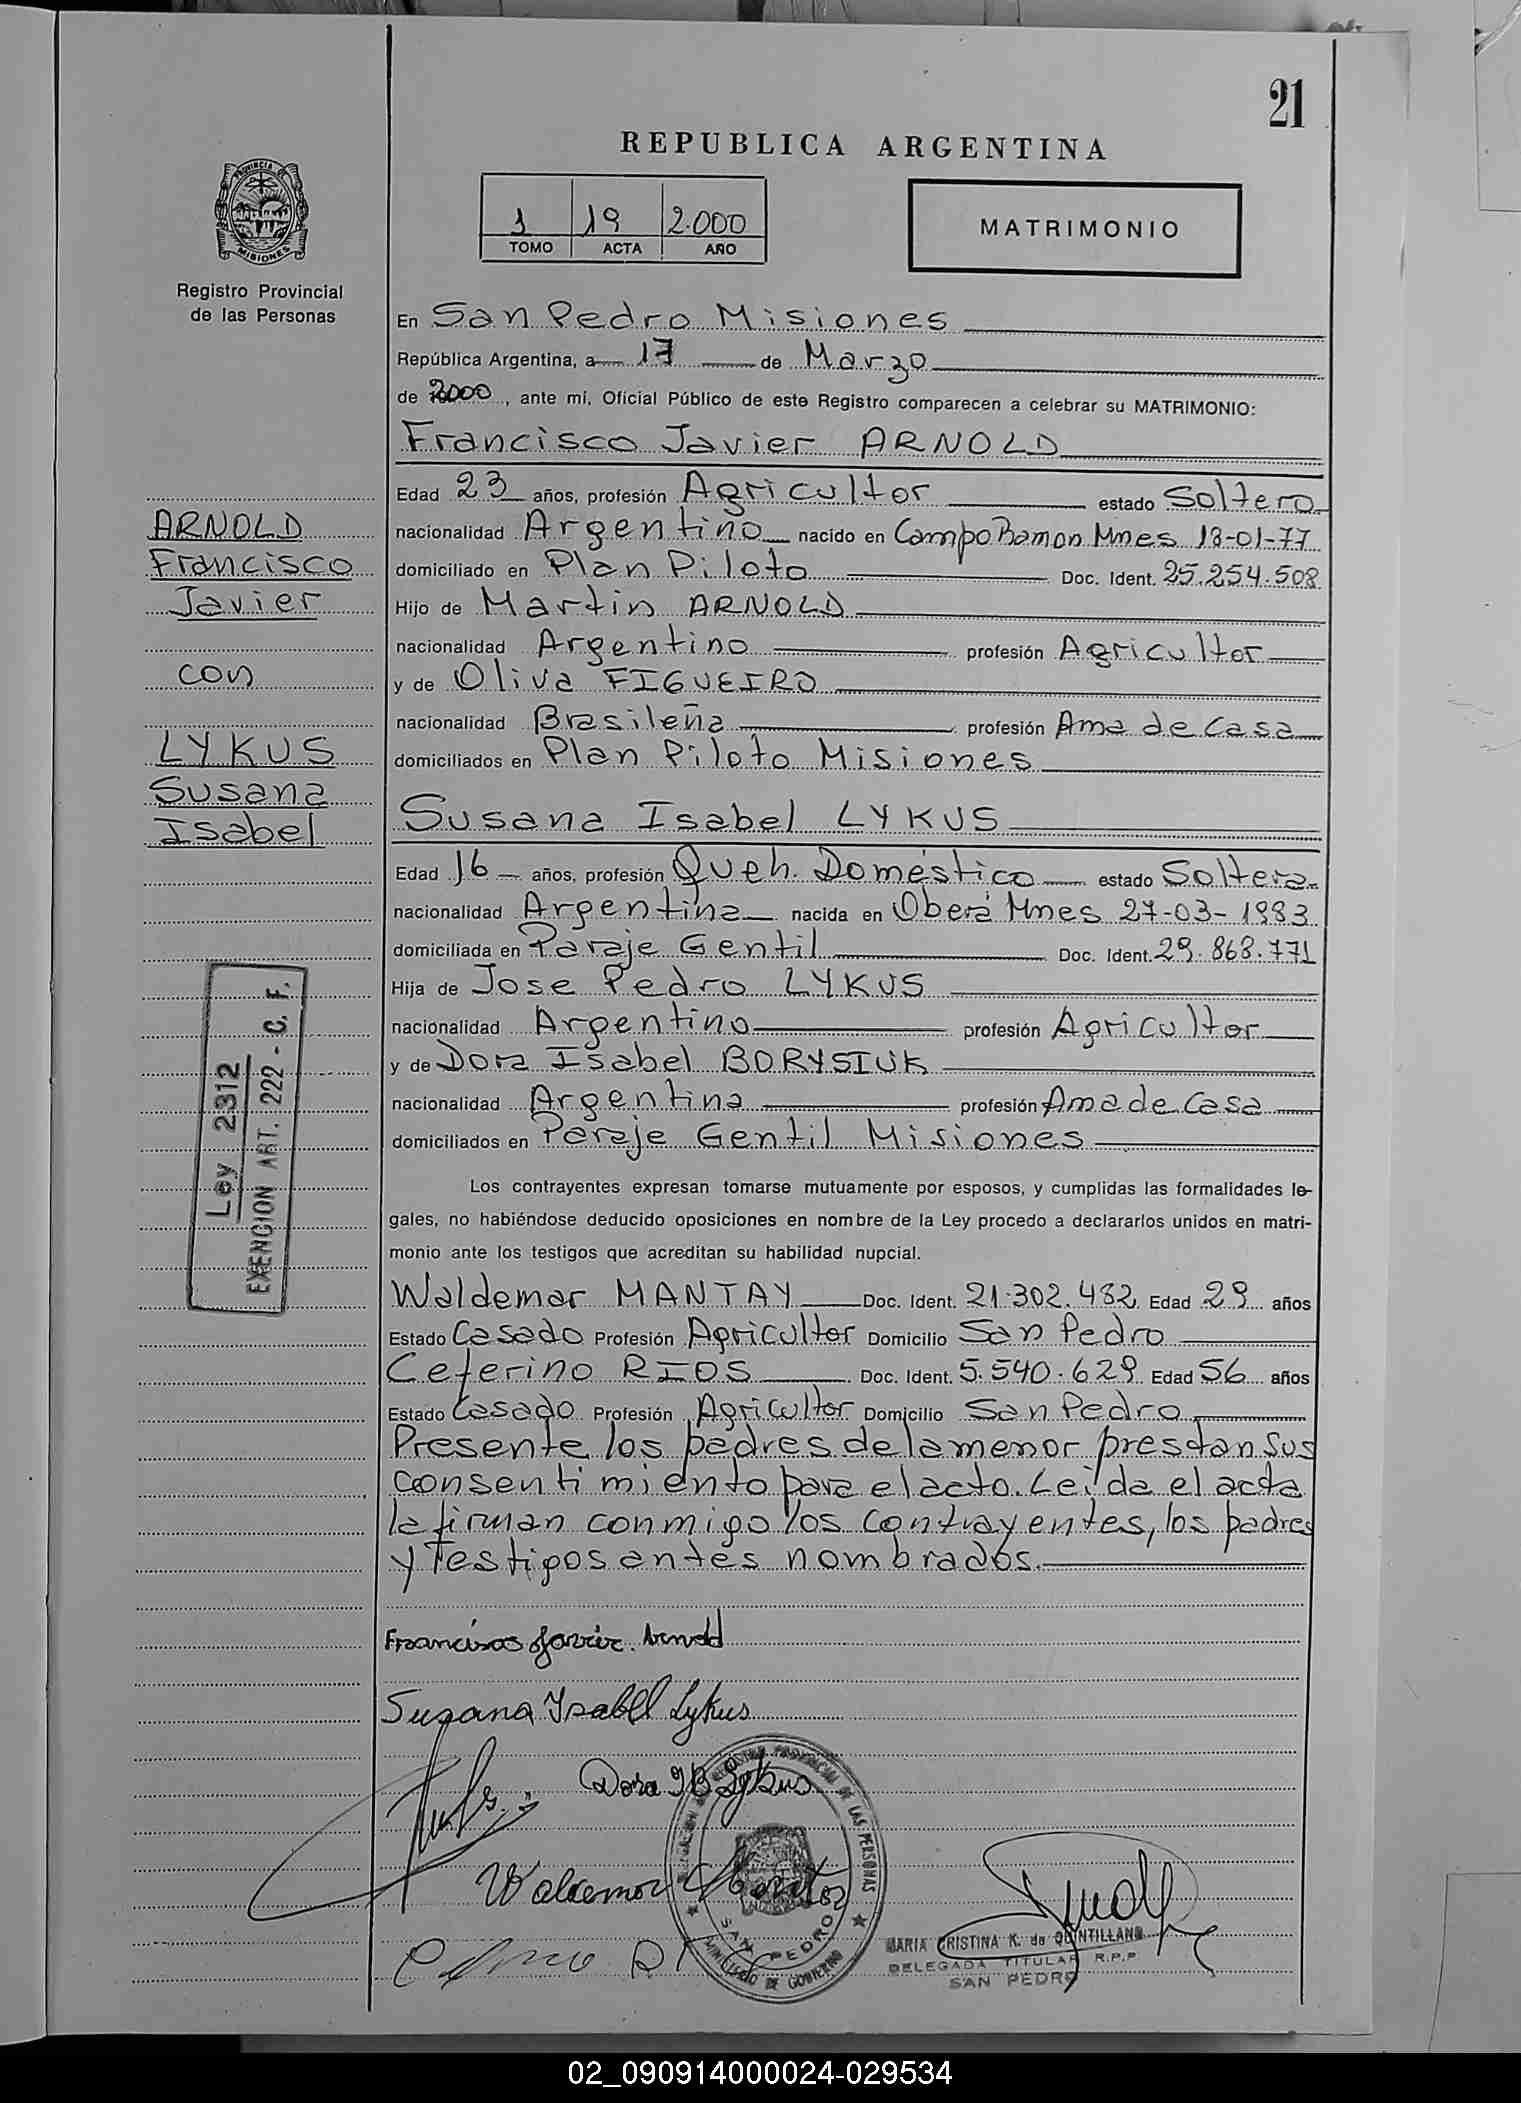 21
REPUBLICA ARGENTINA
PROVINCIA DE
MISIONES
Registro Provincial
de las Personas
1 19 2.000
TOMO ACTA AÑO
MATRIMONIO
En San Pedro Misiones
República Argentina, a 17 de Marzo
de 2000, ante mí, Oficial Público de este Registro comparecen a celebrar su MATRIMONIO:
Francisco Javier ARNOLD
Edad 23 años, profesión Agricultor estado Soltero
nacionalidad Argentino nacido en Campo Ramon Mnes 18-01-77
domiciliado en Plan Piloto Doc. Ident. 25.254.508
Hijo de Martin ARNOLD
nacionalidad Argentino profesión Agricultor
y de Oliva FIGUEIRO
nacionalidad Brasileña profesión Ama de Casa
domiciliados en Plan Piloto Misiones
ARNOLD
Francisco
Javier
con
LYKUS
Susana
Isabel
Susana Isabel LYKUS
Edad 16 años, profesión Queh. Doméstico estado Soltera
nacionalidad Argentina nacida en Oberá Mnes 27-03-1983
domiciliada en Paraje Gentil Doc. Ident. 29.868.771
Hija de Jose Pedro LYKUS
nacionalidad Argentino profesión Agricultor
y de Dora Isabel BORYSIUK
nacionalidad Argentina profesión Ama de Casa
domiciliados en Paraje Gentil Misiones
Ley 2312
EXENCION ART. 222 - C. F.
Los contrayentes expresan tomarse mutuamente por esposos, y cumplidas las formalidades le-
gales, no habiéndose deducido oposiciones en nombre de la Ley procedo a declararlos unidos en matri-
monio ante los testigos que acreditan su habilidad nupcial.
Waldemar MANTAY Doc. Ident. 21.302.482 Edad 29 años
Estado Casado Profesión Agricultor Domicilio San Pedro
Ceferino RIOS Doc. Ident. 5.540.629 Edad 56 años
Estado Casado Profesión Agricultor Domicilio San Pedro
Presente los padres de la menor prestan sus
consentimiento para el acto. Leída el acta
la firman conmigo los contrayentes, los padres
y testigos antes nombrados.
Francisco Javier Arnold
Susana Isabel Lykus
Dora IB Lykus
Waldemar
PROVINCIAL DE LAS PERSONAS
SAN PEDRO
MINISTERIO DE GOBIERNO
MARIA CRISTINA K. de QUINTILLANO
DELEGADA TITULAR R.P.P
SAN PEDRO
02_090914000024-029534